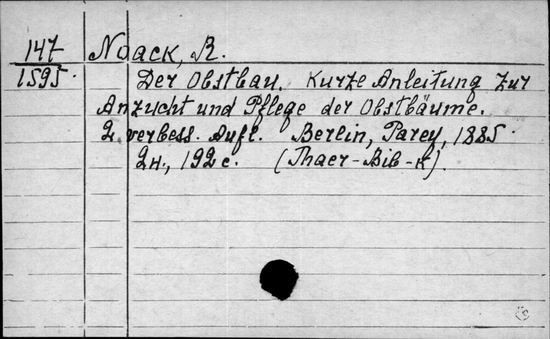 147 Noack, R.
1595. Der Obstbau. Kurze Anleitung zur
Anzucht und Pflege der Obstbäume.
2. verbess. Aufl. Berlin, Parey, 1885.
192 c. (Thaer-Bib-k).